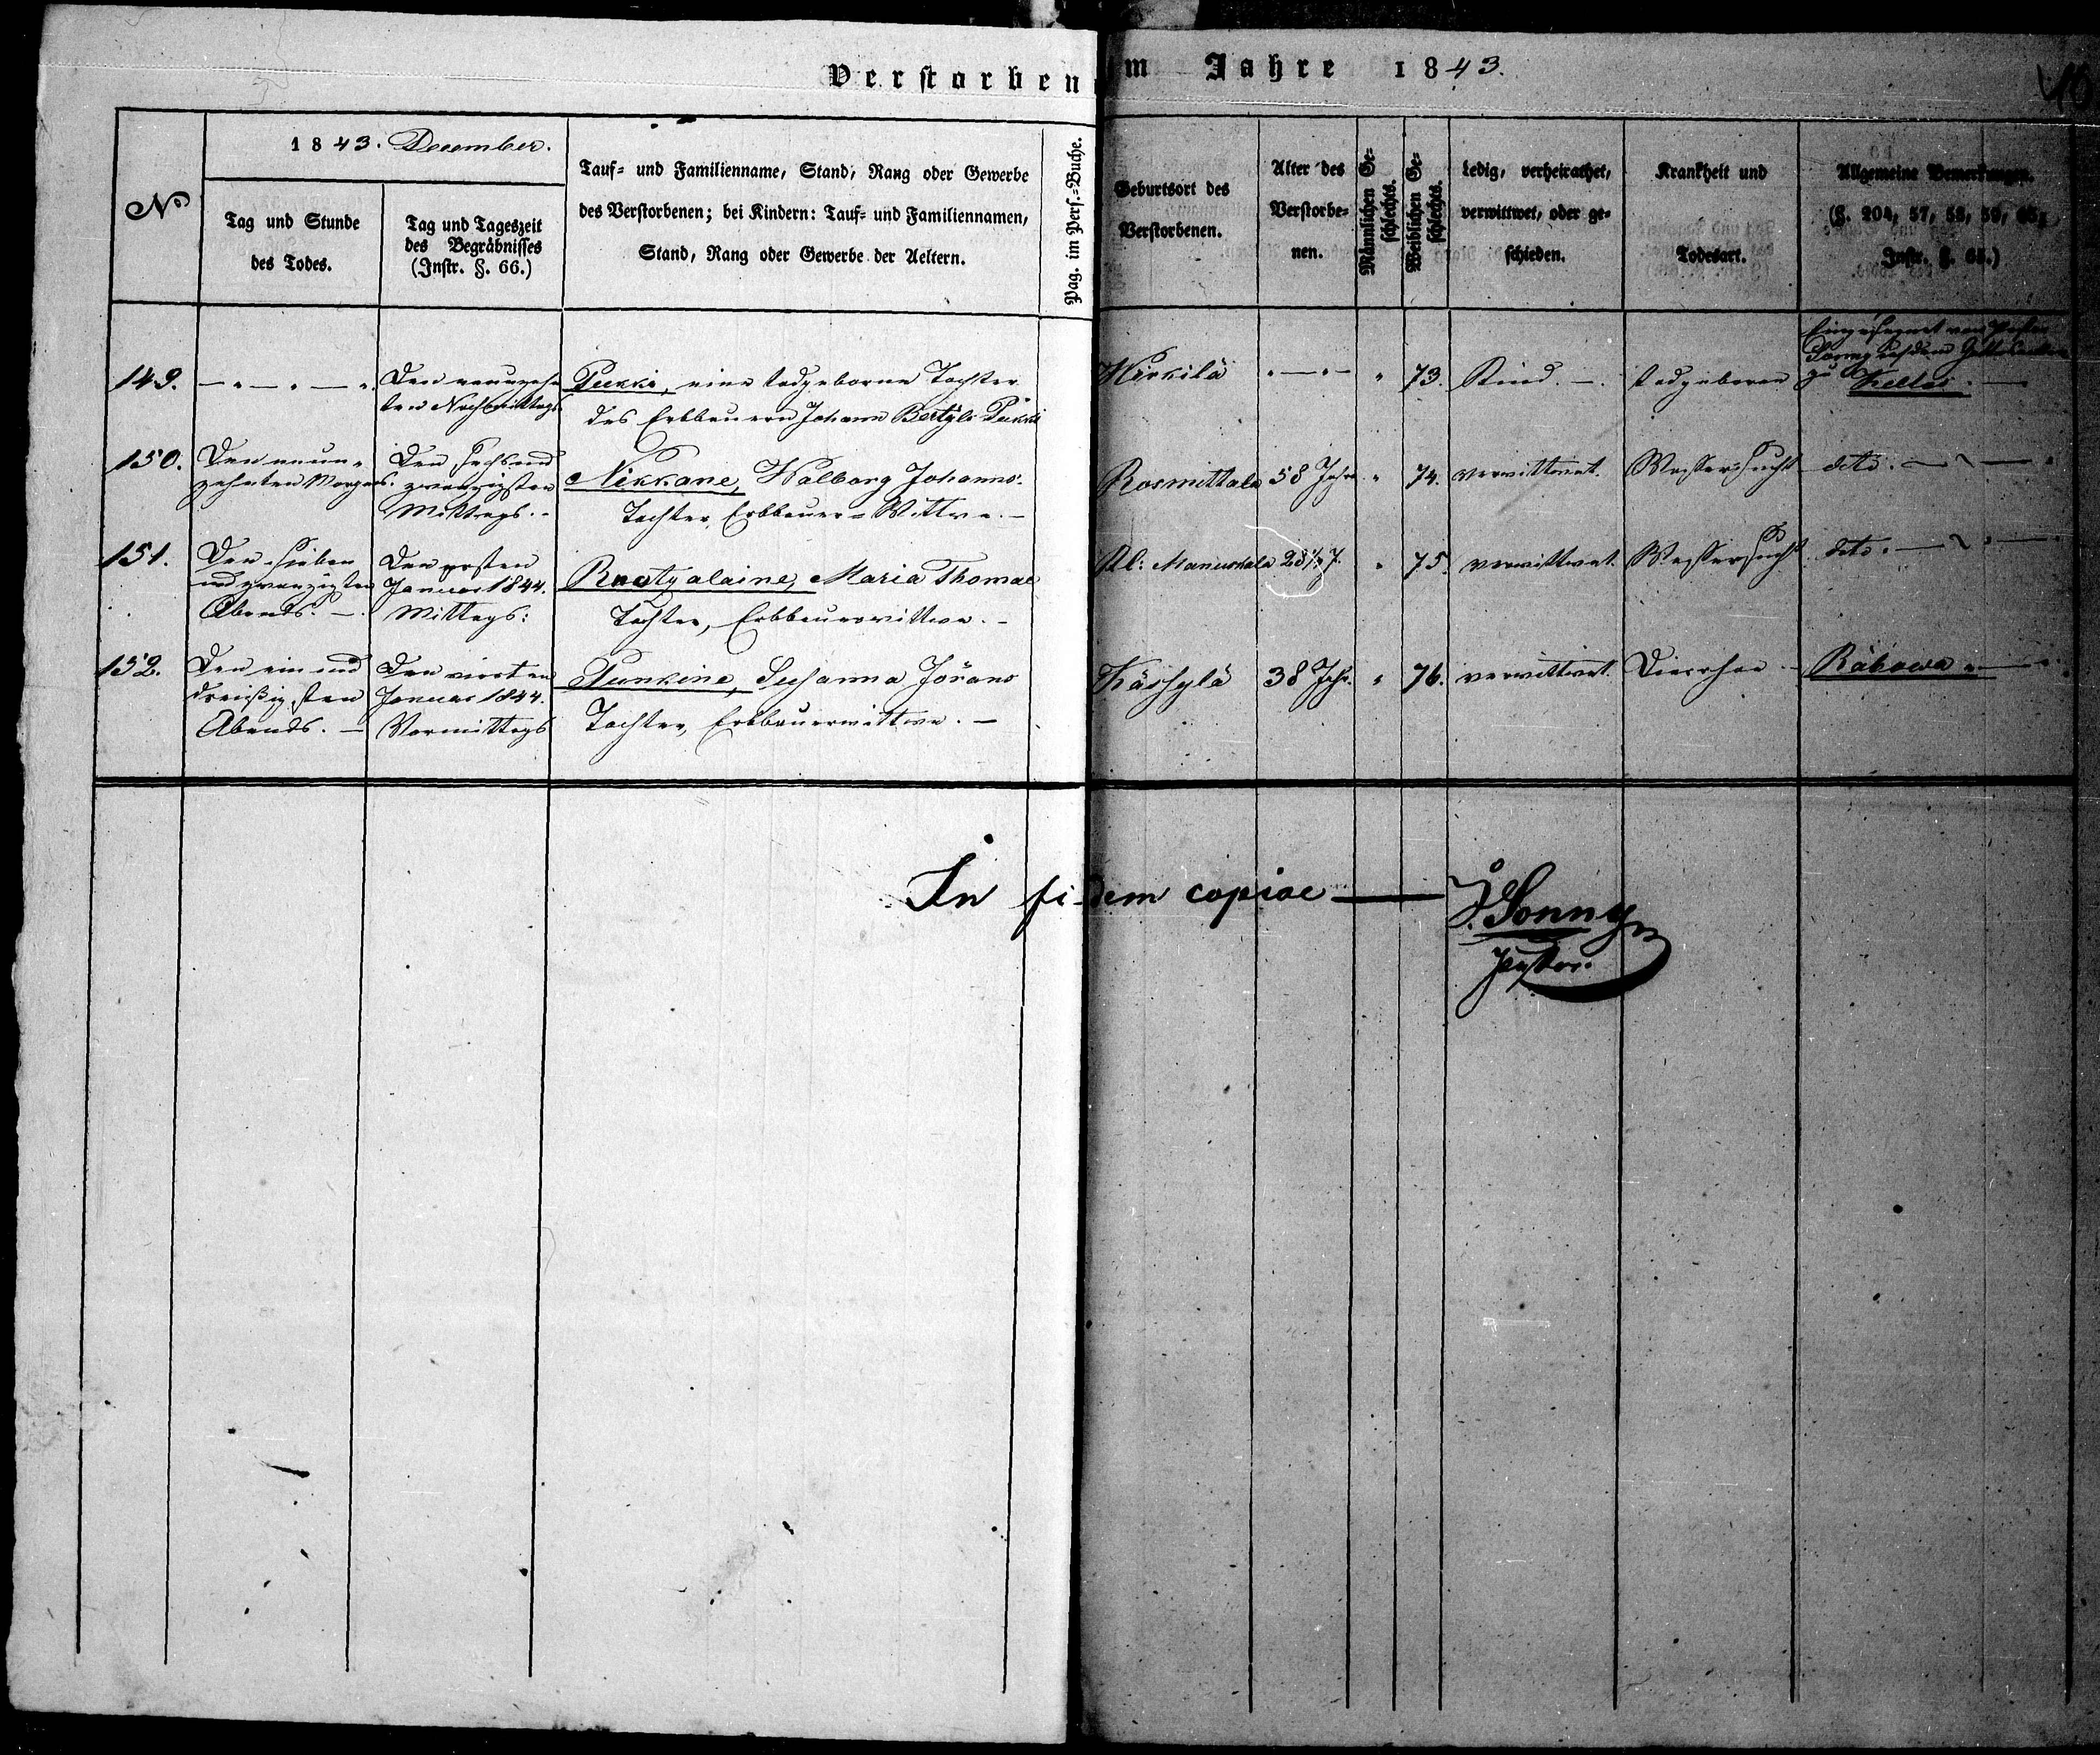 Verstorben
m Jahre 1843.
No
1843. December.
Tag und Stunde
des Todes.
Tag und Tageszeit
des Begräbnisses
(Instr. §. 66.)
Tauf- und Familienname, Stand, Rang oder Gewerbe
des Verstorbenen; bei Kindern: Tauf- und Familiennamen,
Stand, Rang oder Gewerbe der Aeltern.
Pag. im Pers.-Buche.
Geburtsort des
Verstorbenen.
Alter des
Verstorbe-
nen.
Männlichen Ge-
schlechts.
Weiblichen Ge-
schlechts.
Ledig, verheirathet,
verwittwet, oder ge-
schieden.
Krankheit und
Todesart.
Allgemeine Bemerkungen.
(§. 204, 57, 58, 59,
Instr. §. 65.)
149.
Den neunzehn
ten Nachmittags
Pukki, eine todgeborne Tochter
des Erbbauern Johann Bertyls Pukki
Kirkilä
73.
Kind.
todgeboren
Eingesegnet von Pastor
Sonny auf dem Gottesacker
zu Keltis.
150.
Den neun-
zehnten Morgens.
Den sechsund
zwanzigsten
Mittags.
Nikkane, Walborg Johanns-
Tochter, Erbbauer-Wittwe.
Rosmittala
58 Jahr
74.
verwittwet.
Wassersucht
dito.
151.
Den sieben
undzwanzigsten
Abends.
Den ersten
Januar 1844.
Mittags:
Ruotyalaine, Maria Thomae
Tochter, Erbbauerwittwe.
Kl: Manuskala
28 1/2 J.
75.
verwittwet.
Wassersucht
dito.
152.
Den ein und
dreißigsten
Abends.
Den vierten
Januar 1844.
Vormittags
Punkine, Susanna Jörans
Tochter, Erbbauerwittwe.
Kässylä
38 Jahr.
76.
verwittwet.
Diarrhoe
Räbowa
In fidem copiae
J. Sonny
Pastor.